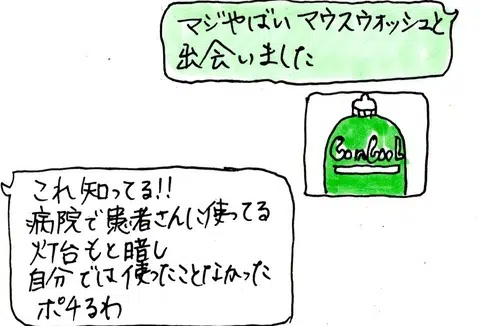 マジやばいマウスウォッシュと
出会いました
ConCool
これ知ってる!!
病院で患者さんに使ってる
灯台もと暗し
自分では使ったことなかった
ポチるわ